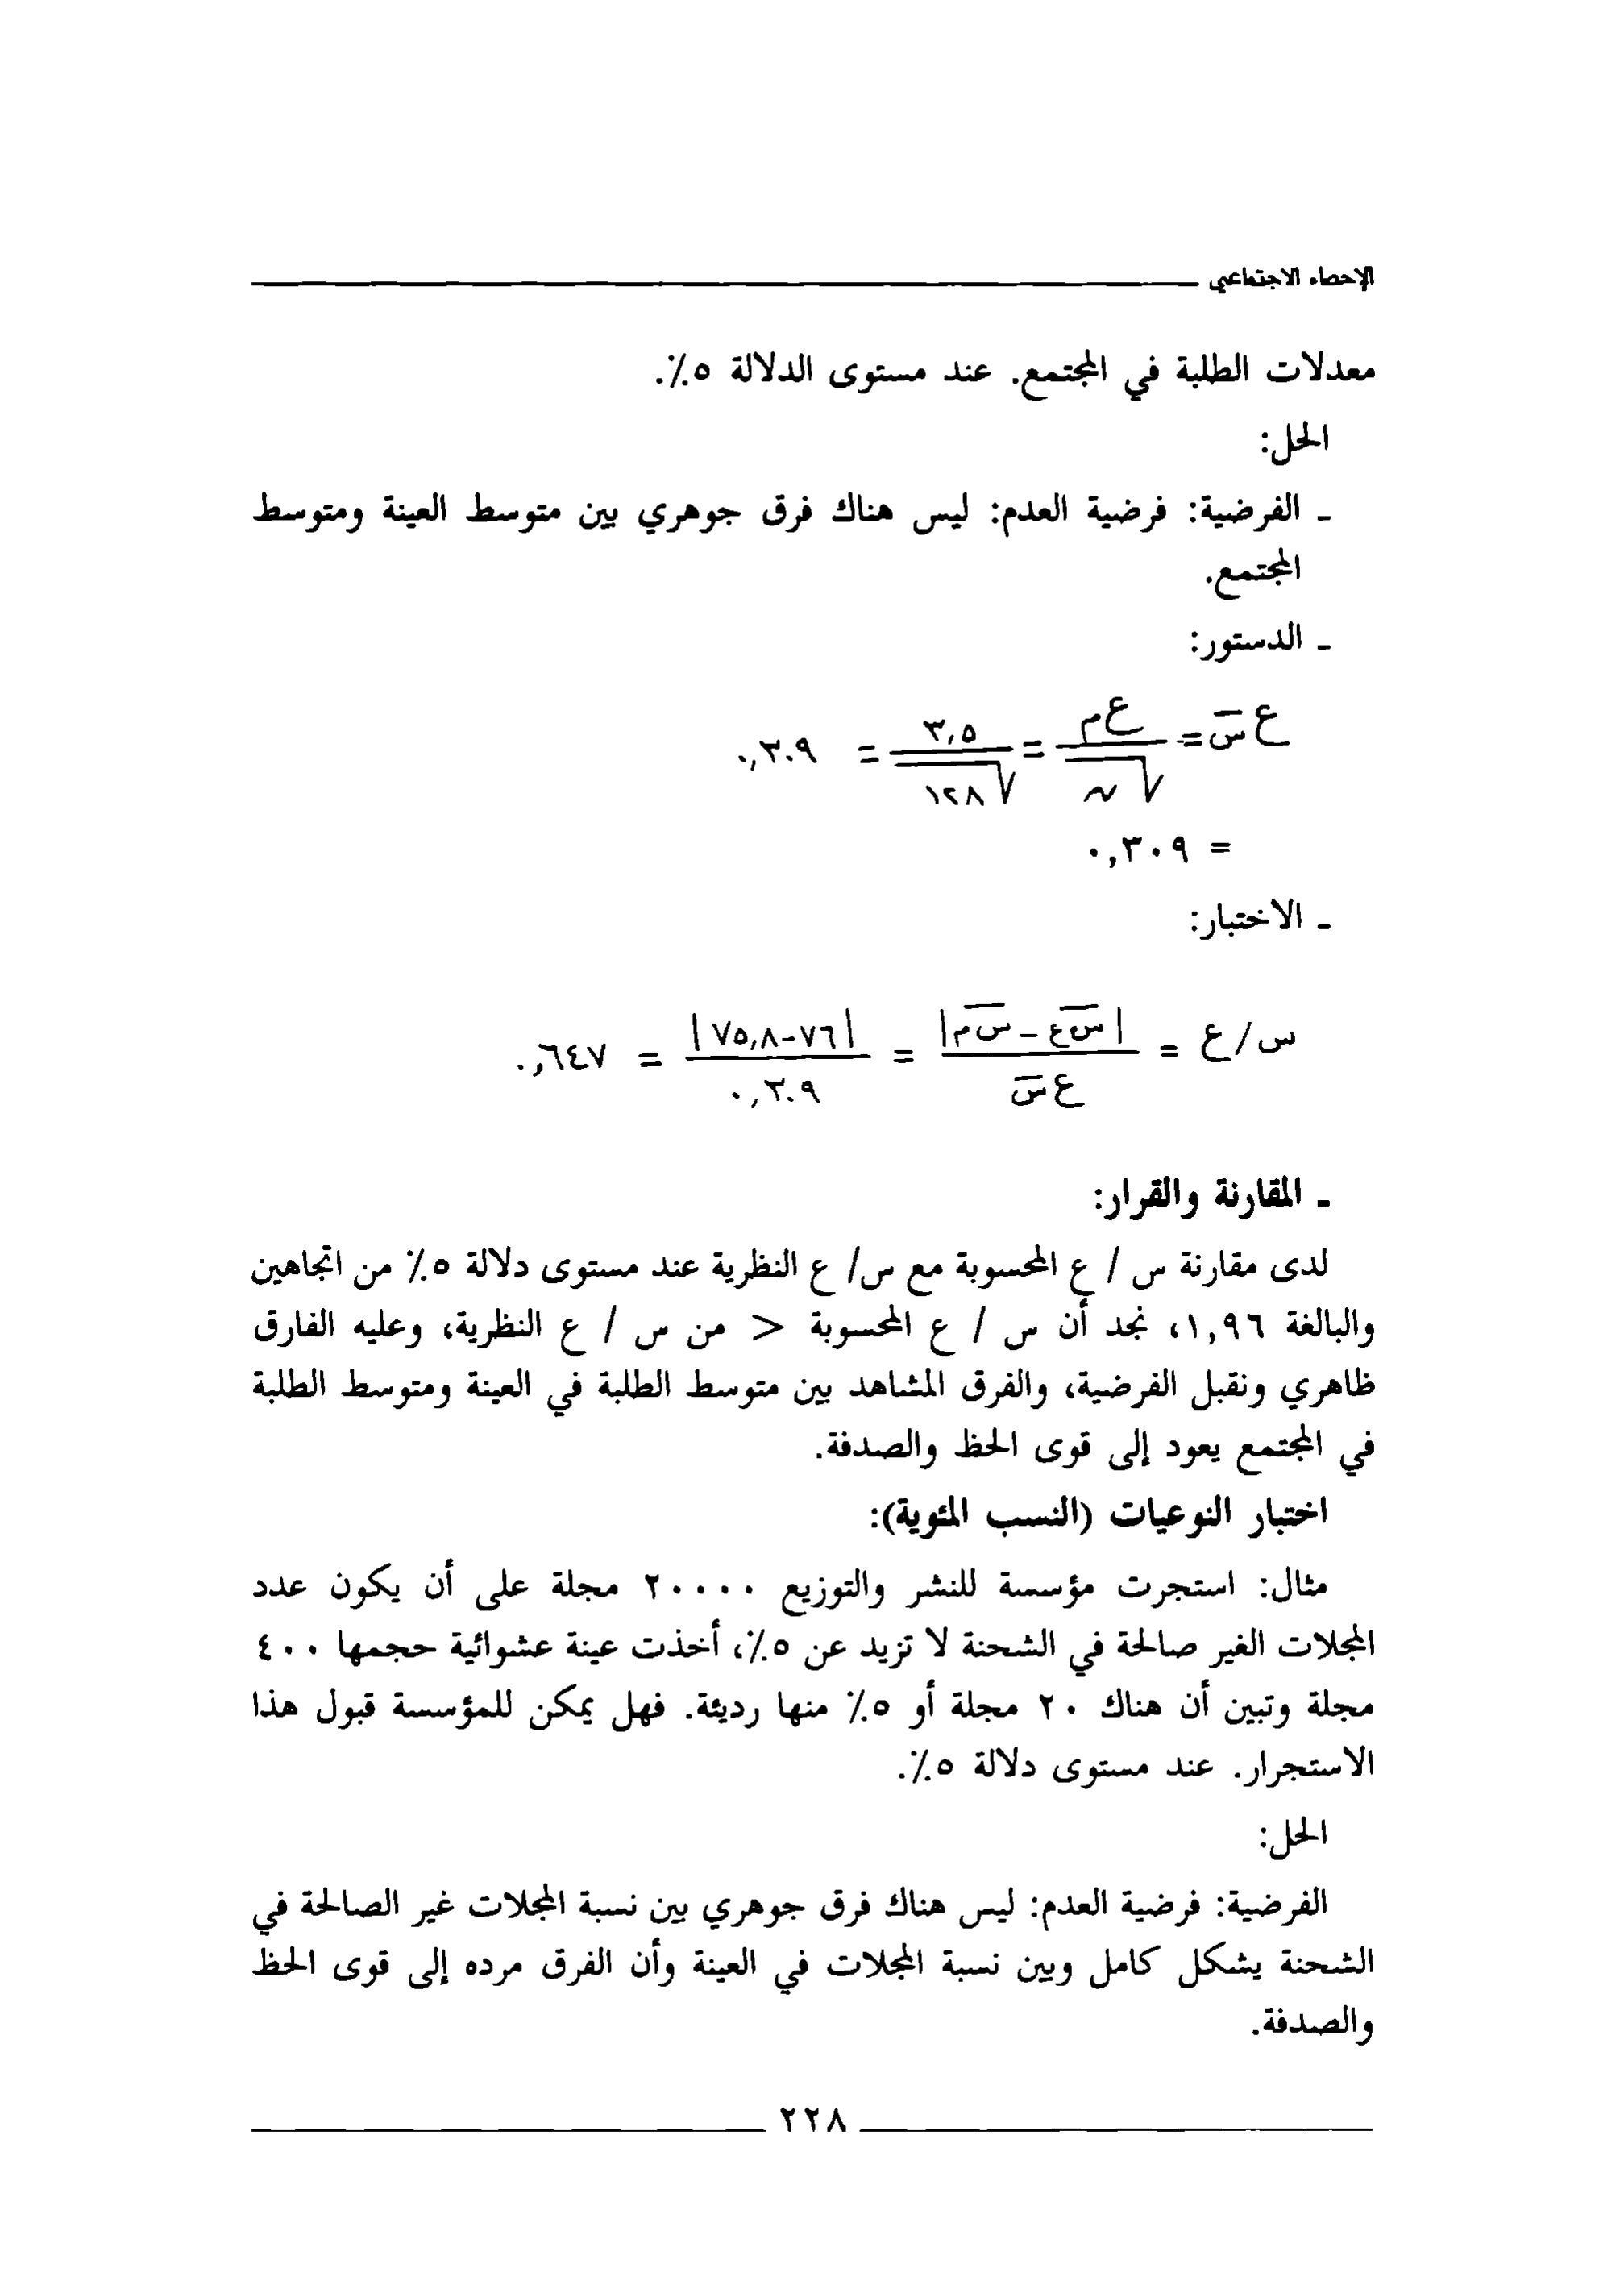 الإحصاء الاجتماعي
معدلات الطلبة في المجتمع. عند مستوى الدلالة ٥٪.
الحل:
ـ الفرضية: فرضية العدم: ليس هناك فرق جوهري بين متوسط العينة ومتوسط
المجتمع.
ـ الدستور:
ع س̄ = ع م / √ن = ٣,٥ / √١٢٨ = ٠,٣٠٩
= ٠,٣٠٩
ـ الاختبار:
س/ع = |س̄ع - س̄م| / ع س̄ = |٧٦-٧٥,٨| / ٠,٣٠٩ = ٠,٦٤٧
ـ المقارنة والقرار:
لدى مقارنة س / ع المحسوبة مع س/ ع النظرية عند مستوى دلالة ٥٪ من اتجاهين
والبالغة ١,٩٦، نجد أن س / ع المحسوبة < من س / ع النظرية، وعليه الفارق
ظاهري ونقبل الفرضية، والفرق المشاهد بين متوسط الطلبة في العينة ومتوسط الطلبة
في المجتمع يعود إلى قوى الحظ والصدفة.
اختبار النوعيات (النسب المئوية):
مثال: استجرت مؤسسة للنشر والتوزيع ٢٠٠٠٠ مجلة على أن يكون عدد
المجلات الغير صالحة في الشحنة لا تزيد عن ٥٪، أخذت عينة عشوائية حجمها ٤٠٠
مجلة وتبين أن هناك ٢٠ مجلة أو ٥٪ منها رديئة. فهل يمكن للمؤسسة قبول هذا
الاستجرار. عند مستوى دلالة ٥٪.
الحل:
الفرضية: فرضية العدم: ليس هناك فرق جوهري بين نسبة المجلات غير الصالحة في
الشحنة يشكل كامل وبين نسبة المجلات في العينة وأن الفرق مرده إلى قوى الحظ
والصدفة.
٢٢٨